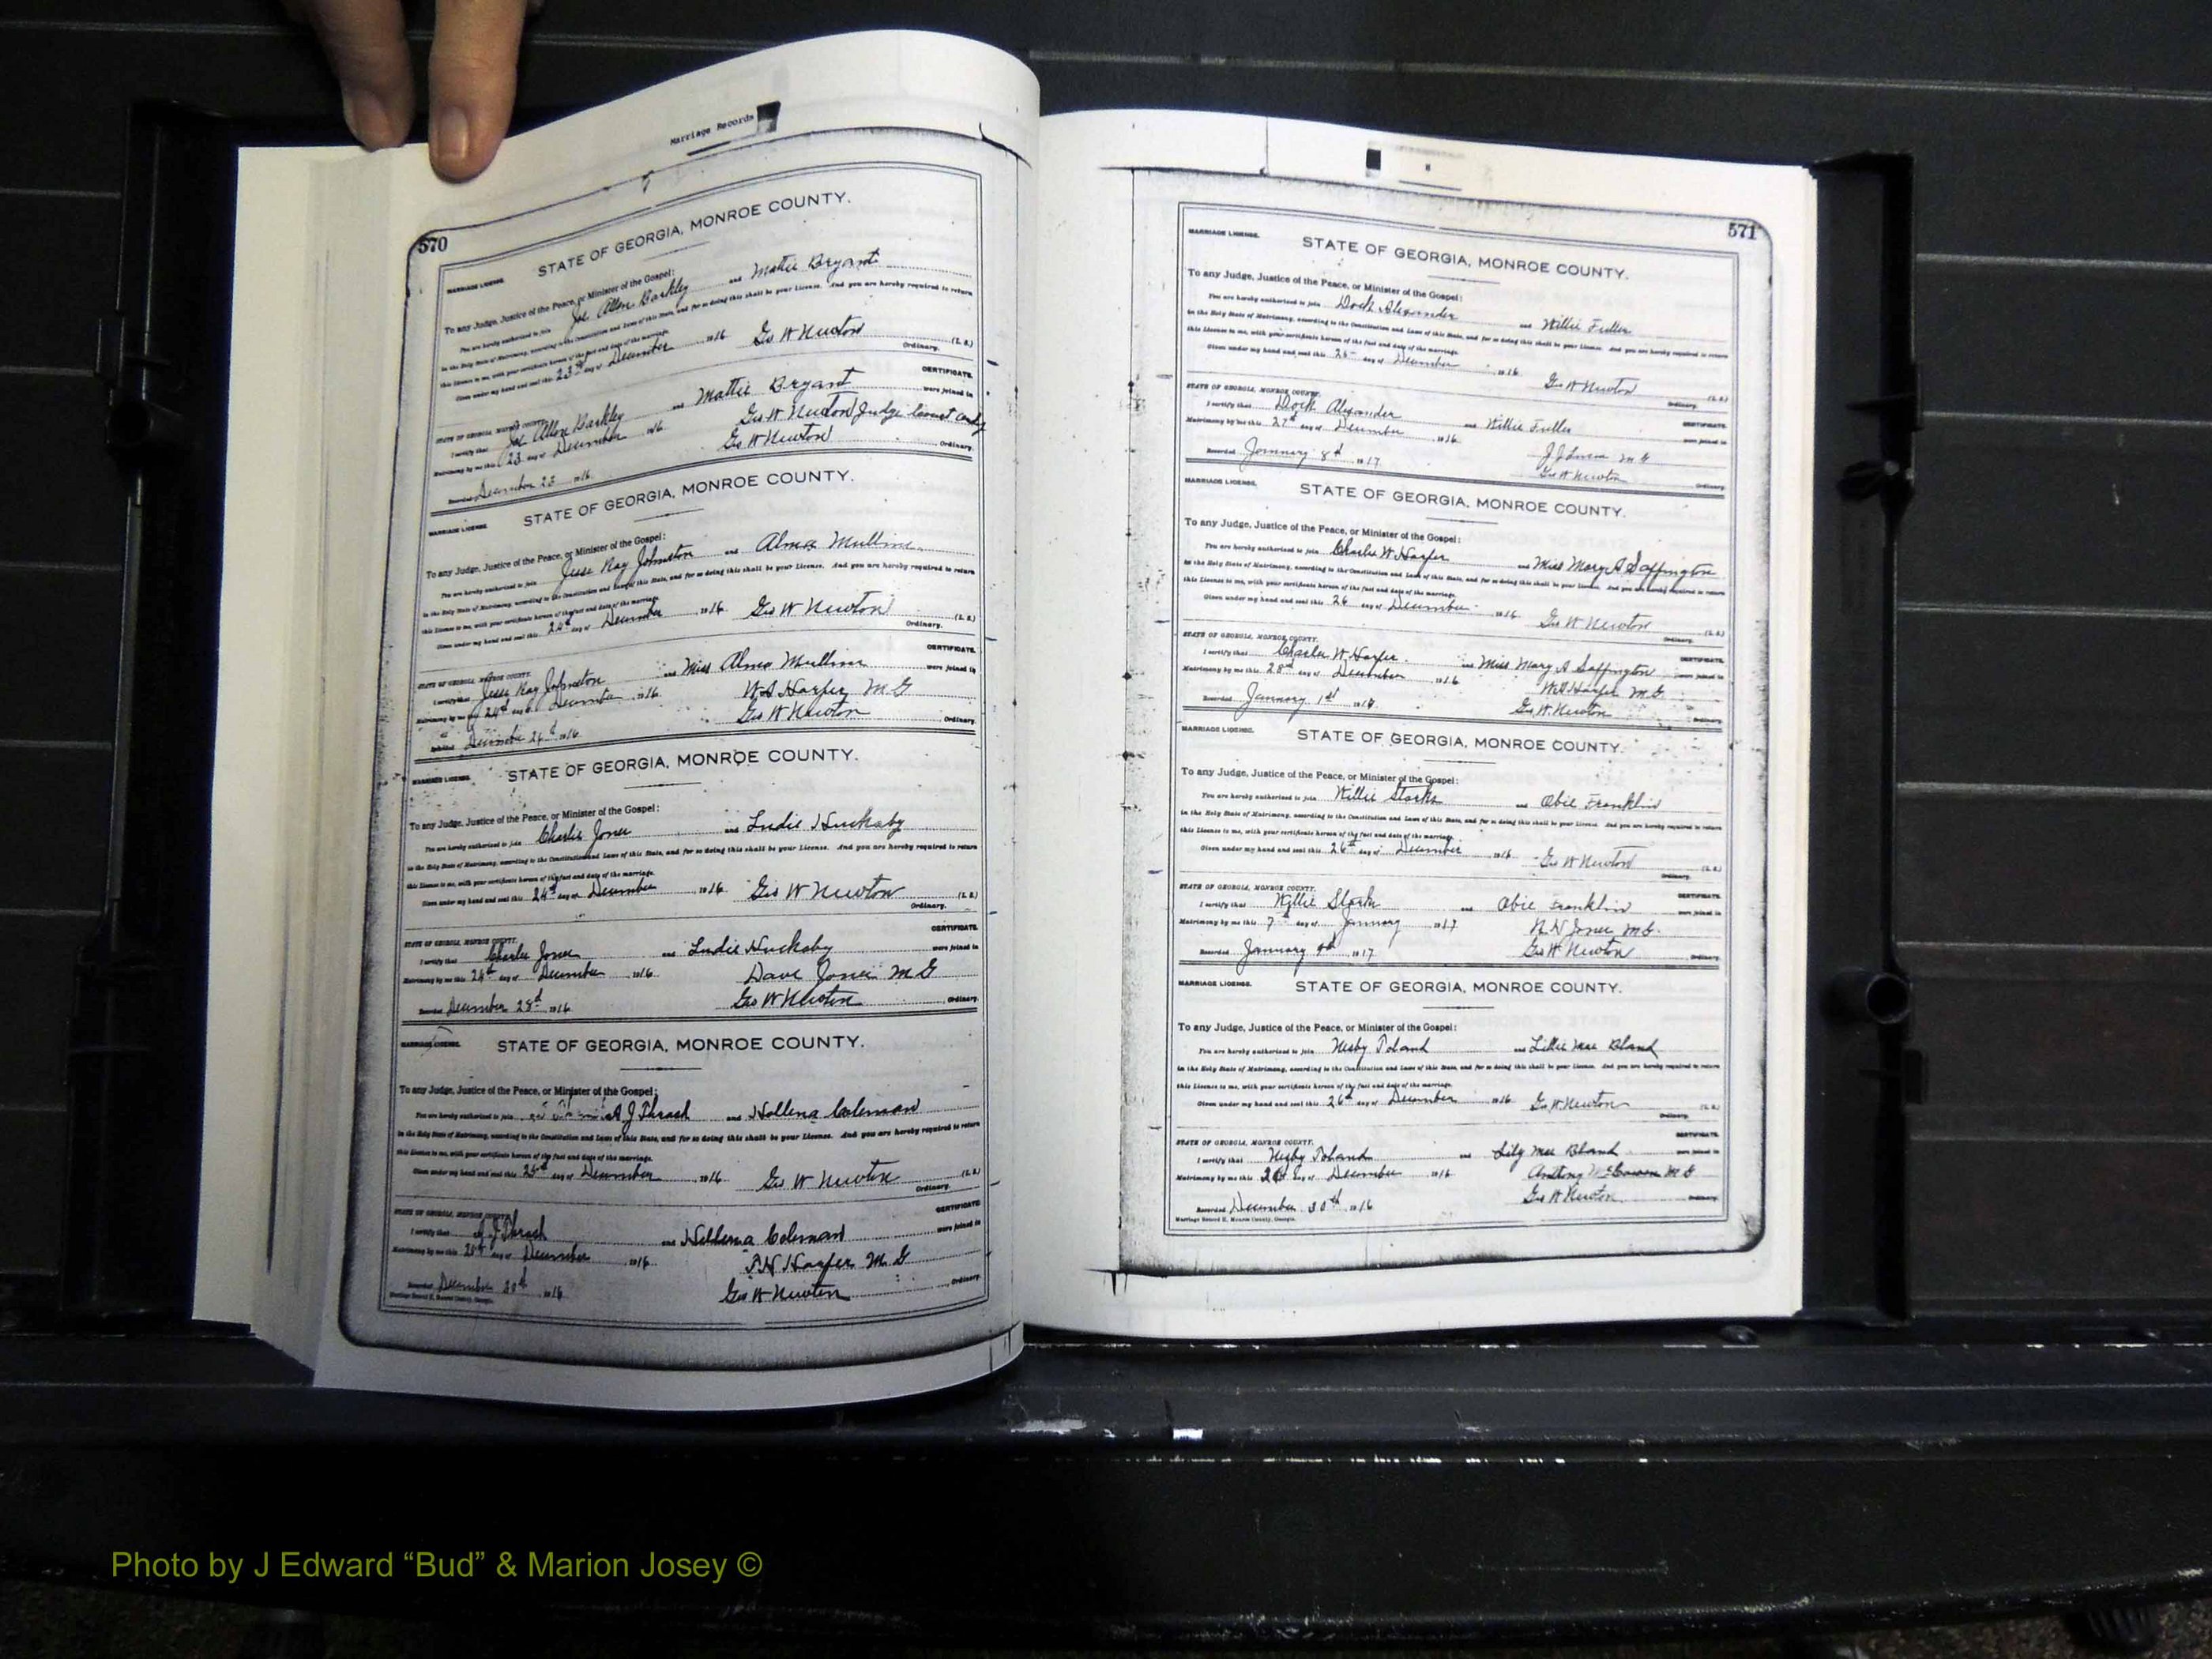 Marriage Records
570
STATE OF GEORGIA, MONROE COUNTY.
MARRIAGE LICENSE.
To any Judge, Justice of the Peace, or Minister of the Gospel:
You are hereby authorized to join Joe Allen Barkley and Mattie Bryant
in the Holy State of Matrimony, according to the Constitution and Laws of this State, and for so doing this shall be your License. And you are hereby required to return
this License to me, with your certificate hereon of the fact and date of the marriage.
Given under my hand and seal this 23rd day of December 1916 Geo W Newton (L. S.)
Ordinary.
STATE OF GEORGIA, MONROE COUNTY. CERTIFICATE.
I certify that Joe Allen Barkley and Mattie Bryant were joined in
Matrimony by me this 23 day of December 1916 Geo W Newton Judge
Recorded December 23 1916 Geo W Newton Ordinary.
MARRIAGE LICENSE. STATE OF GEORGIA, MONROE COUNTY.
To any Judge, Justice of the Peace, or Minister of the Gospel:
You are hereby authorized to join Jesse Ray Johnston and Alma Mullins
in the Holy State of Matrimony, according to the Constitution and Laws of this State, and for so doing this shall be your License. And you are hereby required to return
this License to me, with your certificate hereon of the fact and date of the marriage.
Given under my hand and seal this 24th day of December 1916 Geo W Newton (L. S.)
Ordinary.
STATE OF GEORGIA, MONROE COUNTY. CERTIFICATE.
I certify that Jesse Ray Johnston and Miss Alma Mullins were joined in
Matrimony by me this 24th day of December 1916 W A Harper M G
December 26th 1916 Geo W Newton Ordinary.
MARRIAGE LICENSE. STATE OF GEORGIA, MONROE COUNTY.
To any Judge, Justice of the Peace, or Minister of the Gospel:
You are hereby authorized to join Charlie Jones and Ludie Huckaby
in the Holy State of Matrimony, according to the Constitution and Laws of this State, and for so doing this shall be your License. And you are hereby required to return
this License to me, with your certificate hereon of the fact and date of the marriage.
Given under my hand and seal this 24th day of December 1916 Geo W Newton (L. S.)
Ordinary.
STATE OF GEORGIA, MONROE COUNTY. CERTIFICATE.
I certify that Charlie Jones and Ludie Huckaby were joined in
Matrimony by me this 24th day of December 1916 Dave Jones M G
Recorded December 28th 1916 Geo W Newton Ordinary.
MARRIAGE LICENSE. STATE OF GEORGIA, MONROE COUNTY.
To any Judge, Justice of the Peace, or Minister of the Gospel:
You are hereby authorized to join A J Thrash and Hollena Coleman
in the Holy State of Matrimony, according to the Constitution and Laws of this State, and for so doing this shall be your License. And you are hereby required to return
this License to me, with your certificate hereon of the fact and date of the marriage.
Given under my hand and seal this day of December 1916 Geo W Newton (L. S.)
Ordinary.
STATE OF GEORGIA, MONROE COUNTY. CERTIFICATE.
I certify that A J Thrash and Hollena Coleman were joined in
Matrimony by me this day of December 1916 Harper M. G
Recorded December 30th 1916 Geo W Newton Ordinary.
Marriage Record H, Monroe County, Georgia.
571
MARRIAGE LICENSE. STATE OF GEORGIA, MONROE COUNTY.
To any Judge, Justice of the Peace, or Minister of the Gospel:
You are hereby authorized to join Dock Alexander and Willie Fuller
in the Holy State of Matrimony, according to the Constitution and Laws of this State, and for so doing this shall be your License. And you are hereby required to return
this License to me, with your certificate hereon of the fact and date of the marriage.
Given under my hand and seal this day of December 1916 Geo W Newton (L. S.)
Ordinary.
STATE OF GEORGIA, MONROE COUNTY. CERTIFICATE.
I certify that Dock Alexander and Willie Fuller were joined in
Matrimony by me this 27th day of December 1916 M G
Recorded January 8th 1917 Geo W Newton Ordinary.
MARRIAGE LICENSE. STATE OF GEORGIA, MONROE COUNTY.
To any Judge, Justice of the Peace, or Minister of the Gospel:
You are hereby authorized to join Charlie W Harper and Miss Mary A Saffington
in the Holy State of Matrimony, according to the Constitution and Laws of this State, and for so doing this shall be your License. And you are hereby required to return
this License to me, with your certificate hereon of the fact and date of the marriage.
Given under my hand and seal this 26 day of December 1916 Geo W Newton (L. S.)
Ordinary.
STATE OF GEORGIA, MONROE COUNTY. CERTIFICATE.
I certify that Charlie W Harper and Miss Mary A Saffington were joined in
Matrimony by me this 28th day of December 1916 W A Harper M. G.
Recorded January 1st 1917 Geo W. Newton Ordinary.
MARRIAGE LICENSE. STATE OF GEORGIA, MONROE COUNTY.
To any Judge, Justice of the Peace, or Minister of the Gospel:
You are hereby authorized to join Willie Starks and Obie Franklin
in the Holy State of Matrimony, according to the Constitution and Laws of this State, and for so doing this shall be your License. And you are hereby required to return
this License to me, with your certificate hereon of the fact and date of the marriage.
Given under my hand and seal this 26th day of December 1916 Geo W Newton (L. S.)
Ordinary.
STATE OF GEORGIA, MONROE COUNTY. CERTIFICATE.
I certify that Willie Starks and Obie Franklin were joined in
Matrimony by me this 7th day of January 1917 Jones M. G.
Recorded January 9th 1917 Geo W Newton Ordinary.
MARRIAGE LICENSE. STATE OF GEORGIA, MONROE COUNTY.
To any Judge, Justice of the Peace, or Minister of the Gospel:
You are hereby authorized to join Nesby Poland and Lillie Mae Bland
in the Holy State of Matrimony, according to the Constitution and Laws of this State, and for so doing this shall be your License. And you are hereby required to return
this License to me, with your certificate hereon of the fact and date of the marriage.
Given under my hand and seal this 26th day of December 1916 Geo W Newton (L. S.)
Ordinary.
STATE OF GEORGIA, MONROE COUNTY. CERTIFICATE.
I certify that Nesby Poland and Lily Mae Bland were joined in
Matrimony by me this day of December 1916 M G
Recorded December 30th 1916 Geo W Newton Ordinary.
Marriage Record H, Monroe County, Georgia.
Photo by J Edward “Bud” & Marion Josey ©